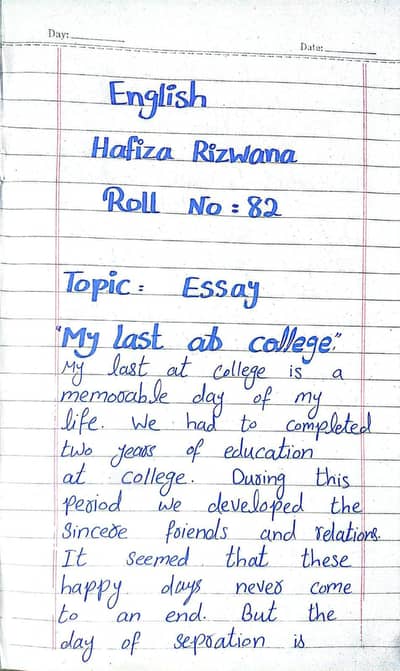 Day:
Date:
English
Hafiza Rizwana
Roll No : 82
Topic : Essay
"My last at college."
My last at college is a
memorable day of my
life. We had to completed
two years of education
at college. During this
period we developed the
Sincere foiends and relations.
It seemed that these
happy days never come
to an end. But the
day of sepration is